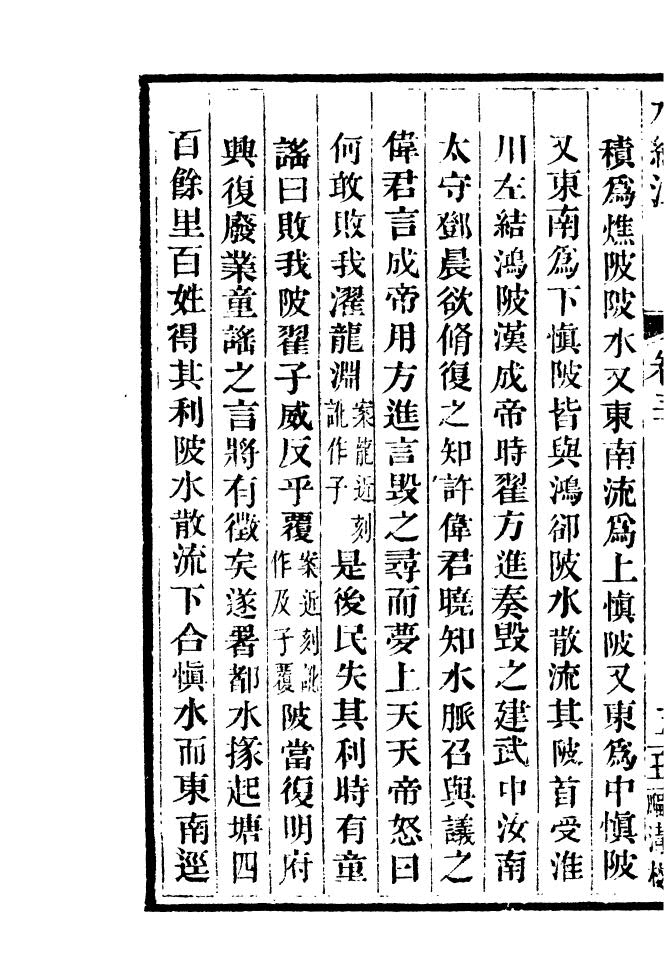 積爲燋陂陂水又東南流爲上慎陂又東爲中慎陂
又東南爲下慎陂皆與鴻卻陂水散流其陂首受淮
川左結鴻陂漢成帝時翟方進奏毀之建武中汝南
太守鄧晨欲脩復之知許偉君曉知水脈召與議之
偉君言成帝用方進言毀之尋而夢上天天帝怒曰
何敢敗我濯龍淵案龍近刻訛作子是後民失其利時有童
謠曰敗我陂翟子威反乎覆案近刻訛作及子覆陂當復明府
興復廢業童謠之言將有徵矣遂署都水掾起塘四
百餘里百姓得其利陂水散流下合慎水而東南逕